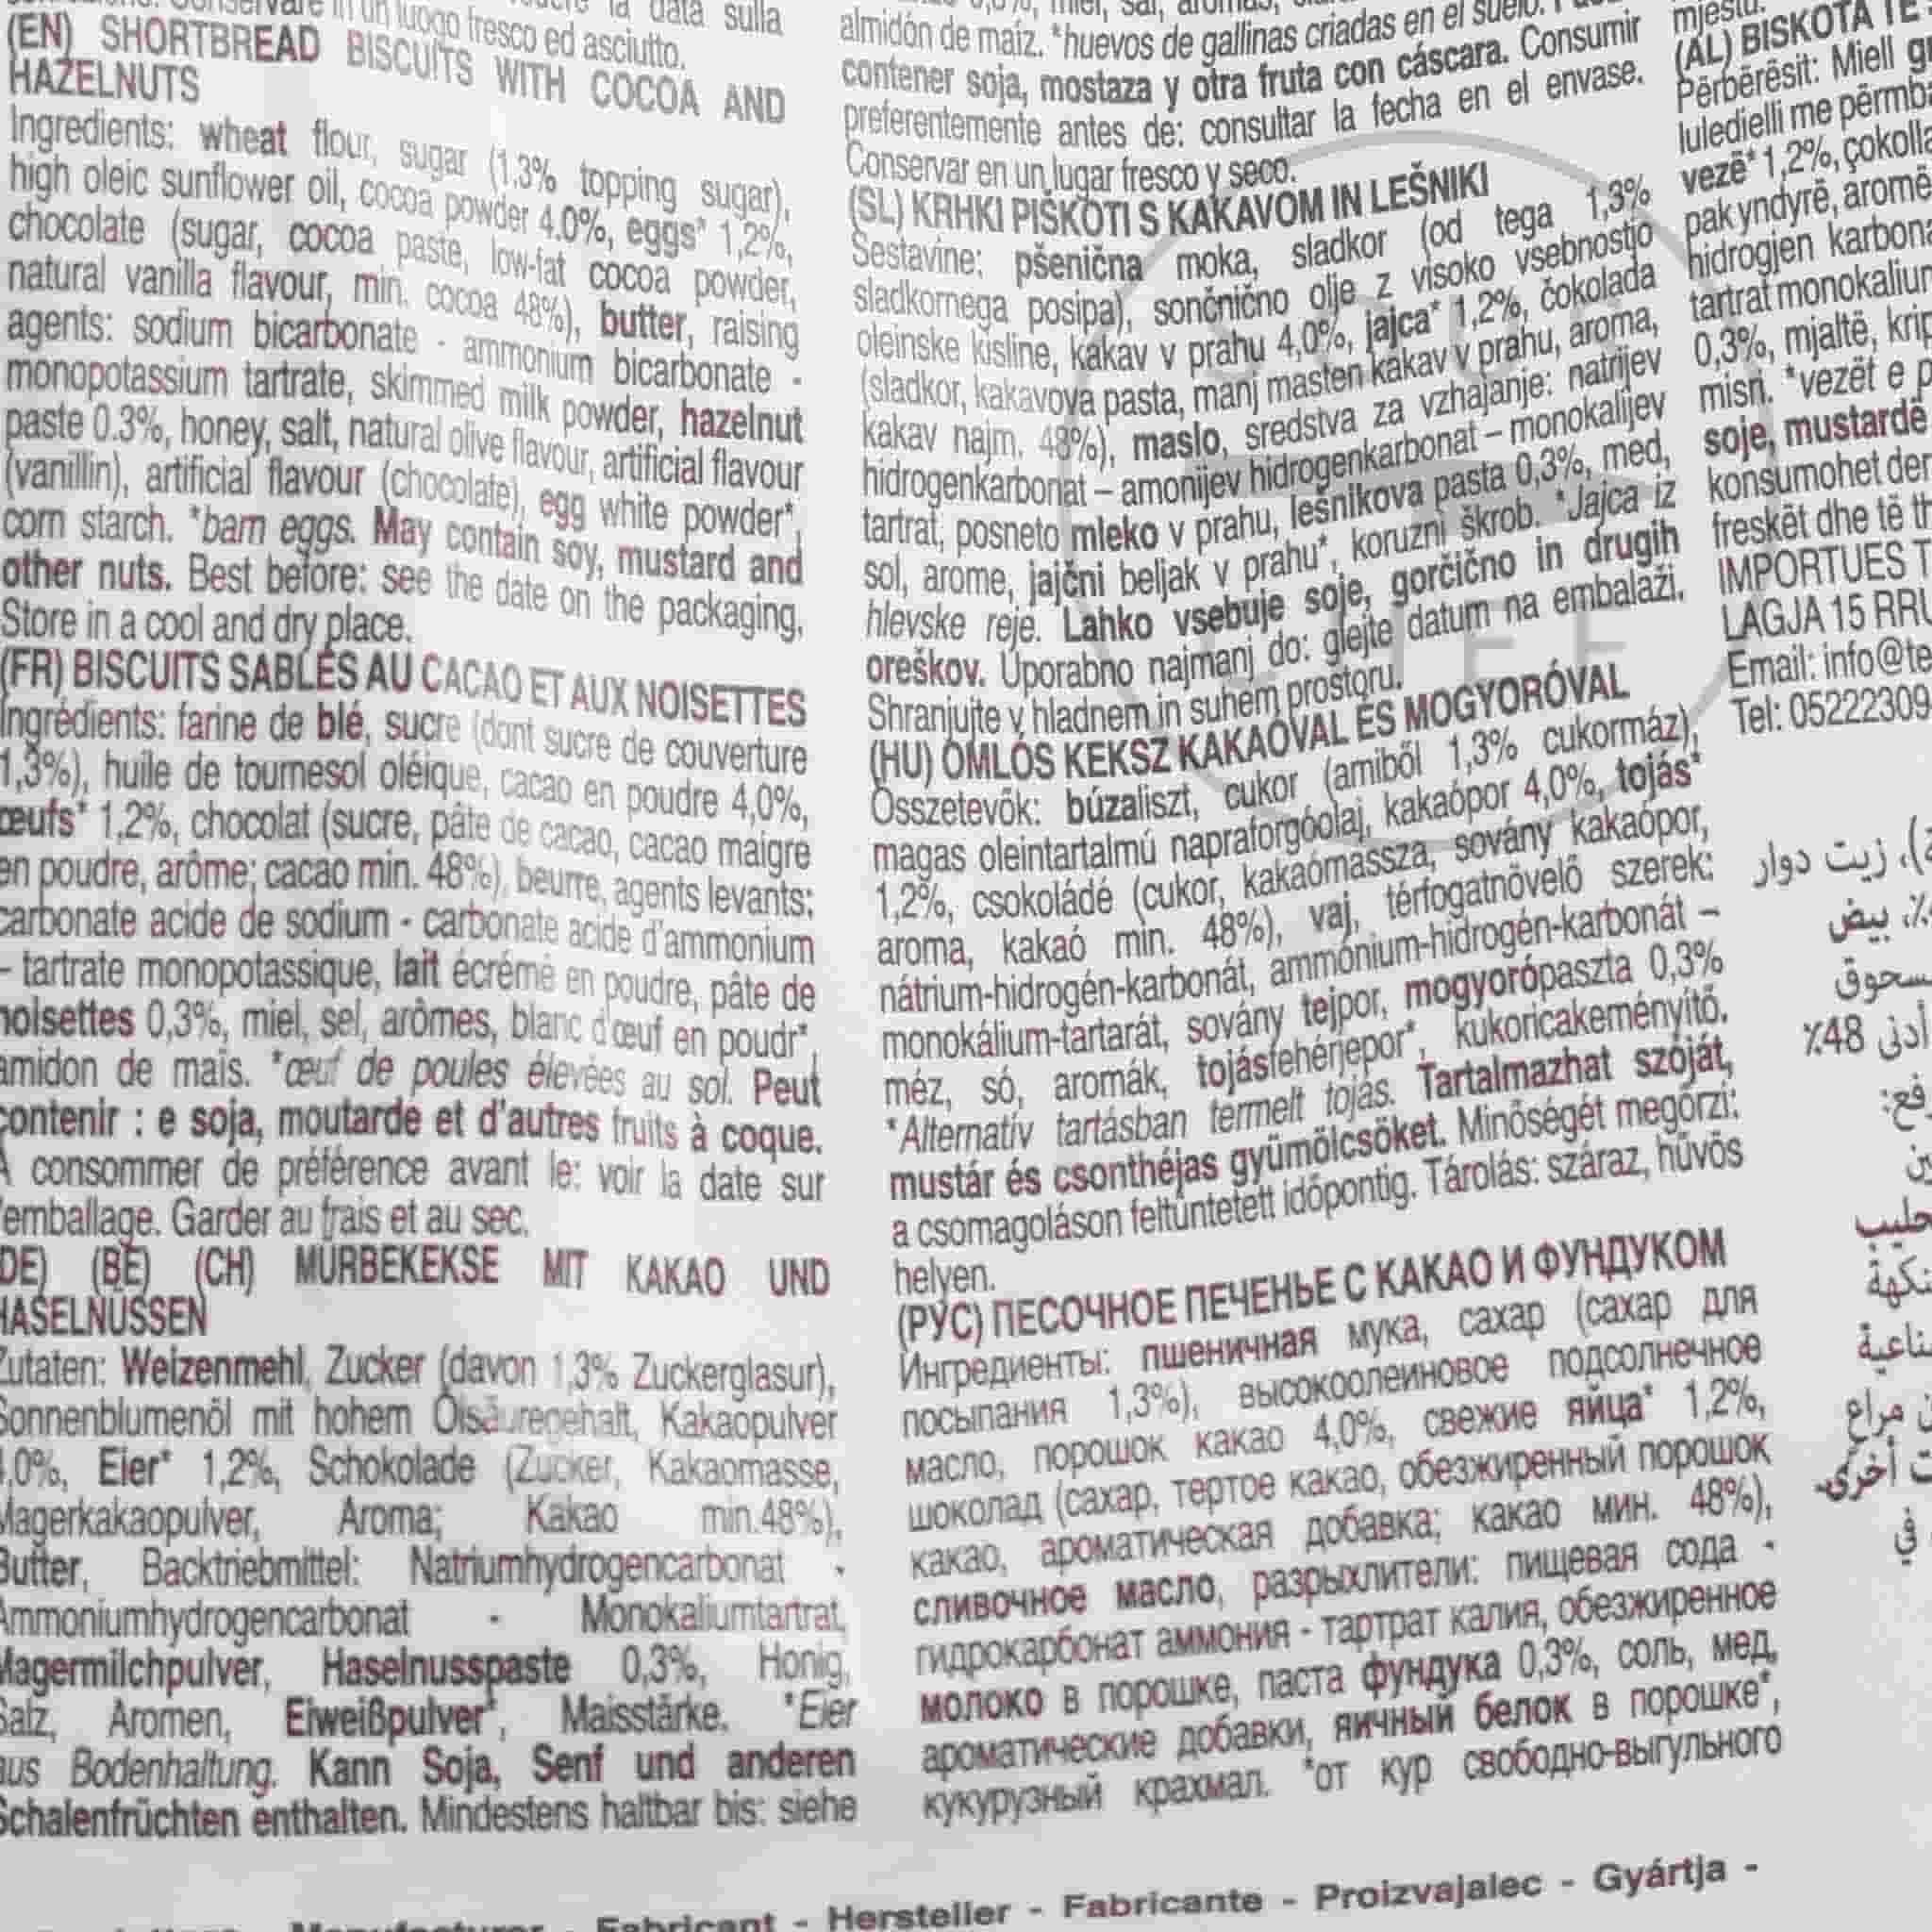 la data sulla
Conservare in un luogo fresco ed asciutto.
(EN) SHORTBREAD BISCUITS WITH COCOA AND
HAZELNUTS
Ingredients: wheat flour, sugar (1.3% topping sugar),
high oleic sunflower oil, cocoa powder 4.0%, eggs* 1,2%,
chocolate (sugar, cocoa paste, low-fat cocoa powder,
natural vanilla flavour, min. cocoa 48%), butter, raising
agents: sodium bicarbonate - ammonium bicarbonate -
monopotassium tartrate, skimmed milk powder, hazelnut
paste 0.3%, honey, salt, natural olive flavour, artificial flavour
(vanillin), artificial flavour (chocolate), egg white powder*,
corn starch. *barn eggs. May contain soy, mustard and
other nuts. Best before: see the date on the packaging,
Store in a cool and dry place.
(FR) BISCUITS SABLÉS AU CACAO ET AUX NOISETTES
Ingrédients: farine de blé, sucre (dont sucre de couverture
1,3%), huile de tournesol oléique, cacao en poudre 4,0%,
œufs* 1,2%, chocolat (sucre, pâte de cacao, cacao maigre
en poudre, arôme; cacao min. 48%), beurre, agents levants:
carbonate acide de sodium - carbonate acide d'ammonium
– tartrate monopotassique, lait écrémé en poudre, pâte de
noisettes 0,3%, miel, sel, arômes, blanc d'œuf en poudr*,
amidon de maïs. *œuf de poules élevées au sol. Peut
contenir : e soja, moutarde et d'autres fruits à coque.
À consommer de préférence avant le: voir la date sur
l'emballage. Garder au frais et au sec.
(DE) (BE) (CH) MÜRBEKEKSE MIT KAKAO UND
HASELNÜSSEN
Zutaten: Weizenmehl, Zucker (davon 1,3% Zuckerglasur),
Sonnenblumenöl mit hohem Ölsäuregehalt, Kakaopulver
4,0%, Eier* 1,2%, Schokolade (Zucker, Kakaomasse,
Magerkakaopulver, Aroma; Kakao min.48%),
Butter, Backtriebmittel: Natriumhydrogencarbonat -
Ammoniumhydrogencarbonat - Monokaliumtartrat,
Magermilchpulver, Haselnusspaste 0,3%, Honig,
Salz, Aromen, Eiweißpulver*, Maisstärke. *Eier
aus Bodenhaltung. Kann Soja, Senf und anderen
Schalenfrüchten enthalten. Mindestens haltbar bis: siehe
almidón de maíz. *huevos de gallinas criadas en el suelo.
contener soja, mostaza y otra fruta con cáscara. Consumir
preferentemente antes de: consultar la fecha en el envase.
Conservar en un lugar fresco y seco.
(SL) KRHKI PIŠKOTI S KAKAVOM IN LEŠNIKI
Sestavine: pšenična moka, sladkor (od tega 1,3%
sladkornega posipa), sončnično olje z visoko vsebnostjo
oleinske kisline, kakav v prahu 4,0%, jajca* 1,2%, čokolada
(sladkor, kakavova pasta, manj masten kakav v prahu, aroma,
kakav najm. 48%), maslo, sredstva za vzhajanje: natrijev
hidrogenkarbonat – amonijev hidrogenkarbonat – monokalijev
tartrat, posneto mleko v prahu, lešnikova pasta 0,3%, med,
sol, arome, jajčni beljak v prahu*, koruzni škrob. *Jajca iz
hlevske reje. Lahko vsebuje soje, gorčično in drugih
oreškov. Uporabno najmanj do: glejte datum na embalaži.
Shranjujte v hladnem in suhem prostoru.
(HU) OMLÓS KEKSZ KAKAÓVAL ÉS MOGYORÓVAL
Összetevők: búzaliszt, cukor (amiből 1,3% cukormáz),
magas oleintartalmú napraforgóolaj, kakaópor 4,0%, tojás*
1,2%, csokoládé (cukor, kakaómassza, sovány kakaópor,
aroma, kakaó min. 48%), vaj, térfogatnövelő szerek:
nátrium-hidrogén-karbonát, ammónium-hidrogén-karbonát –
monokálium-tartarát, sovány tejpor, mogyorópaszta 0,3%
méz, só, aromák, tojásfehérjepor*, kukoricakeményítő.
*Alternatív tartásban termelt tojás. Tartalmazhat szóját,
mustár és csonthéjas gyümölcsöket. Minőségét megőrzi:
a csomagoláson feltüntetett időpontig. Tárolás: száraz, hűvös
helyen.
(РУС) ПЕСОЧНОЕ ПЕЧЕНЬЕ С КАКАО И ФУНДУКОМ
Ингредиенты: пшеничная мука, сахар (сахар для
посыпания 1,3%), высокоолеиновое подсолнечное
масло, порошок какао 4,0%, свежие яйца* 1,2%,
шоколад (сахар, тертое какао, обезжиренный порошок
какао, ароматическая добавка; какао мин. 48%),
сливочное масло, разрыхлители: пищевая сода -
гидрокарбонат аммония - тартрат калия, обезжиренное
молоко в порошке, паста фундука 0,3%, соль, мед,
ароматические добавки, яичный белок в порошке*,
кукурузный крахмал. *от кур свободно-выгульного
mjestu.
(AL) BISKOTA TË
Përbërësit: Miell
luledielli me
vezë* 1,2%,
pak yndyrë,
hidrogjen
tartrat
0,3%, mjaltë,
misri. *vezët e
soje, mustardë
konsumohet
freskët dhe të
IMPORTUES
LAGJA 15
Email:
Tel: 05222309
زيت دوار
بيض
أدنى 48٪
أخرى.
في
Manufacturer - Fabricant - Hersteller - Fabricante - Proizvajalec - Gyártja -